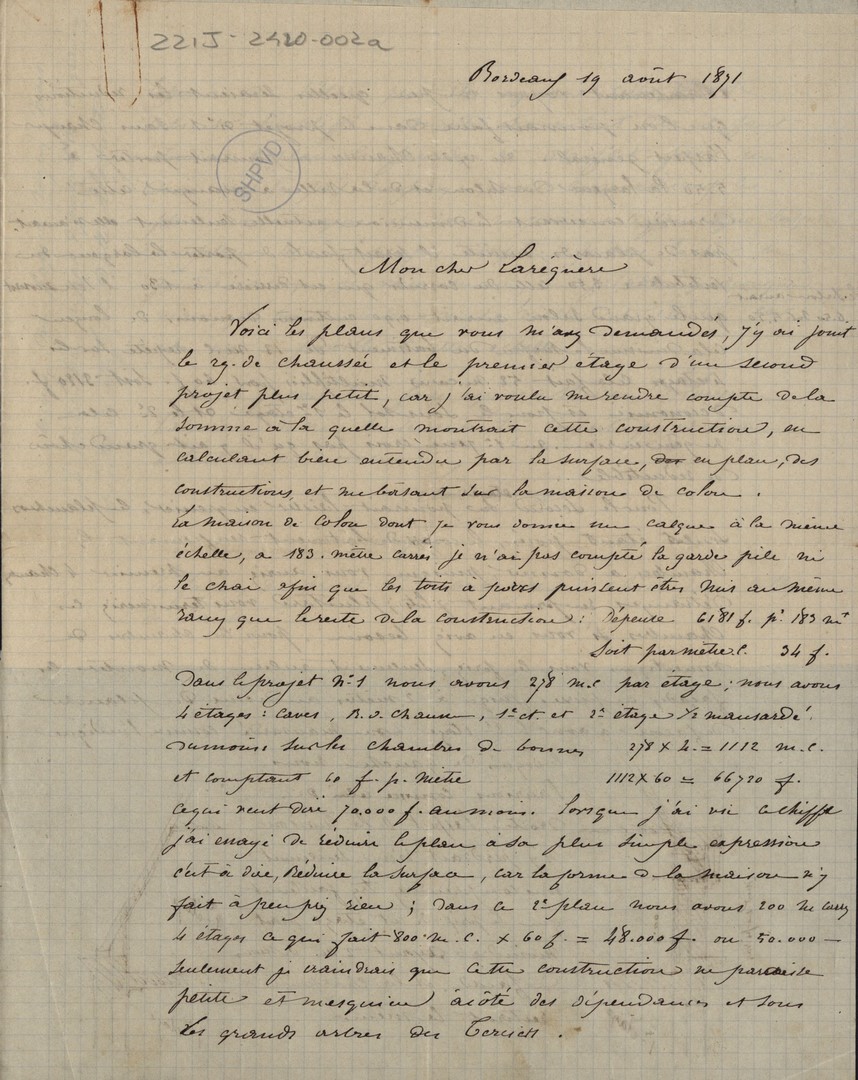 221J-2420-002a
Bordeaux 19 août 1871
SHPVD
Mon cher Laréguère
Voici les plans que vous m'avez demandés, j'y ai joint
le rg. de chaussée et le premier étage d'un second
projet plus petit, car j'ai voulu me rendre compte de la
somme à la quelle montrait cette construction, en
calculant bien entendu par la surface, des en plan, des
constructions, et me basant sur la maison de colon.
La maison de colon dont je vous donne un calque à la même
échelle, a 183. mètre carrés je n'ai pas compté la garde pile ni
le chai afin que les toits à porcs puissent êtres mis au même
rang que le reste de la construction : Dépense 6181 f. pr. 183 mt
Soit par mètre c. 34 f.
Dans le projet No. 1 nous avons 278 m.c par étage ; nous avons
4 étages : caves, R. d. Chaussée, 1er et. et 2e étage 1/2 mansardé.
du moins sur les chambres de bonnes 278 x 4. = 1112 m.c.
et comptant 60 f. p. mètre 1112 x 60 = 66720 f.
ce qui veut dire 70.000 f. au moins. lorsque j'ai vu ce chiffre
j'ai essayé de réduire le plan à sa plus simple expression
c'est à dire, Réduire la surface, car la forme de la maison n'y
fait à peu près rien ; dans ce 2e plan nous avons 200 m carrés
4 étages ce qui fait 800 m.c. x 60 f. = 48.000 f. ou 50.000 —
seulement je craindrais que cette construction ne paraisse
petite et mesquine à côté des dépendances et sous
les grands arbres du